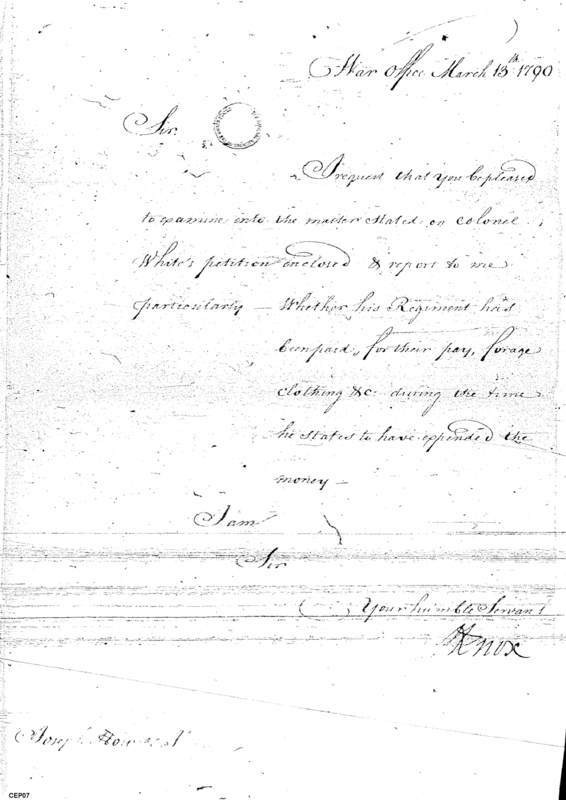 War Office March 13th 1790
Sir.
I request that you be pleased
to examine into the matter stated on Colonel
White's petition enclosed & report to me
particularly — Whether his Regiment has
been paid, for their pay, forage
clothing &c. during the time
he states to have expended the
money —
I am
Sir
Your humble Servant
HKnox
Joseph
CEP07